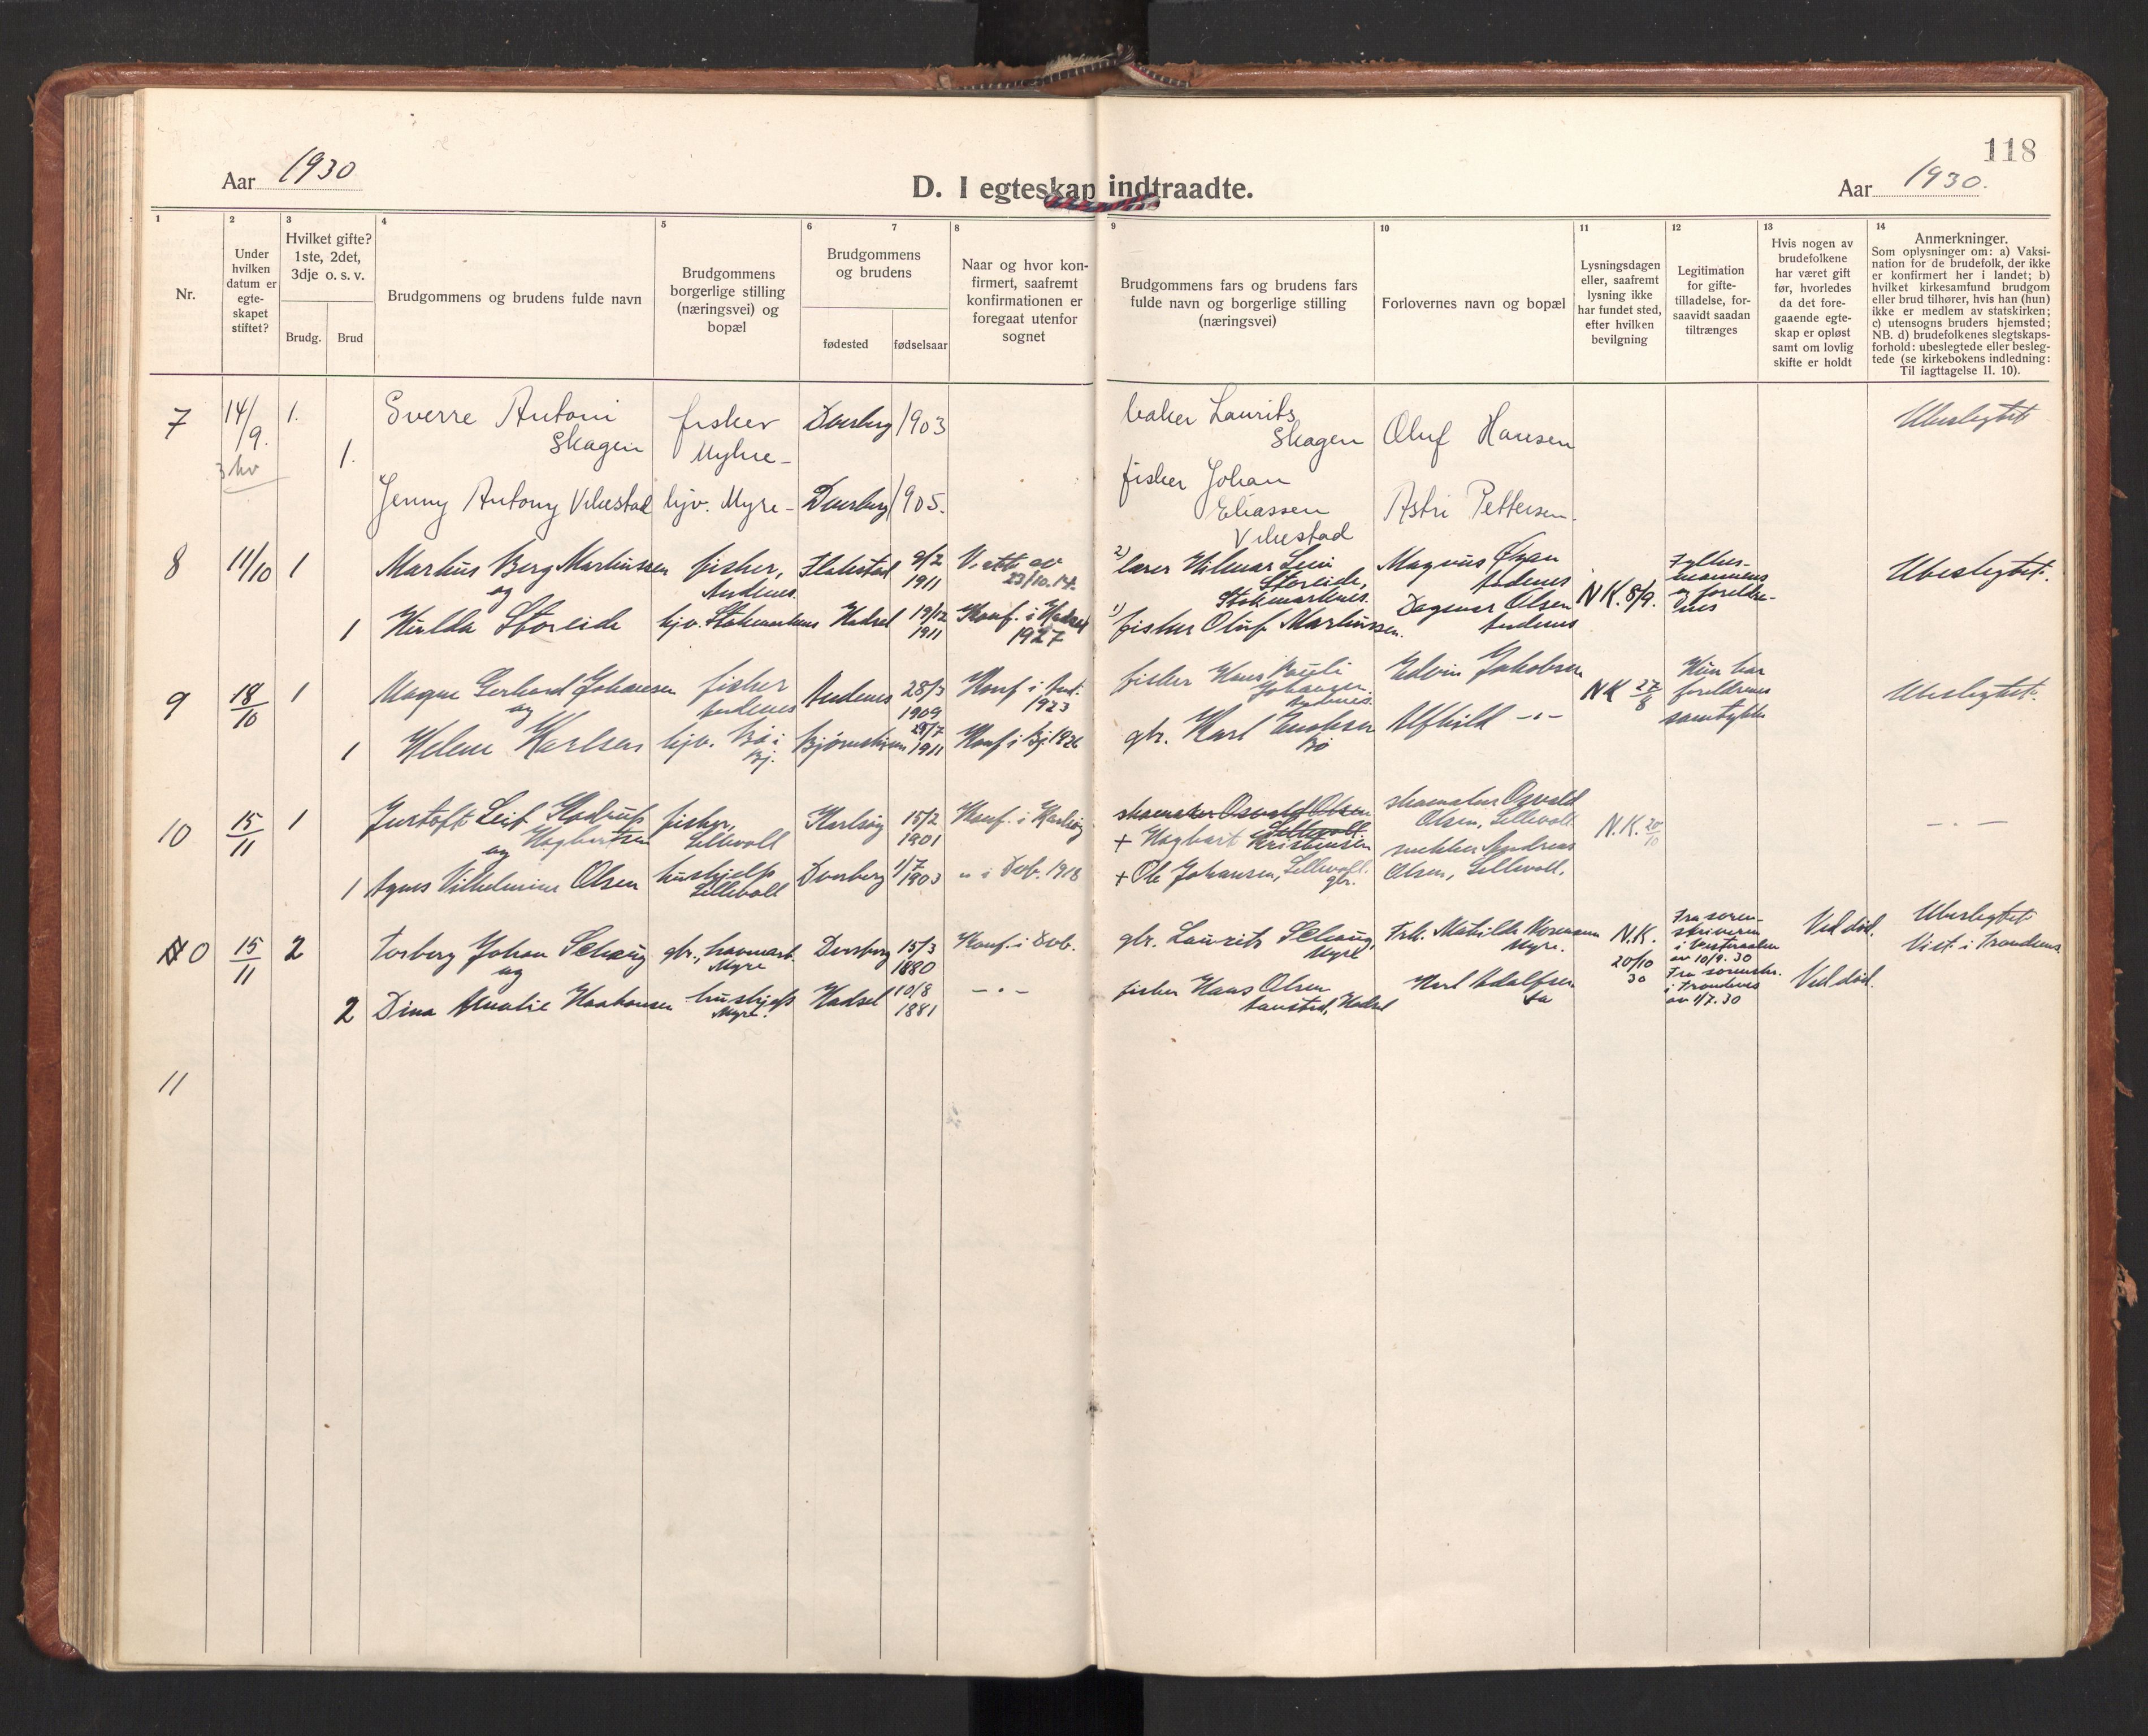 118
Aar 1930
D. I egteskap indtraadte.
Aar 1930.
1
2
3
4
5
6
7
8
9
10
11
12
13
14
Nr.
Under
hvilken
datum er
egte-
skapet
stiftet?
Hvilket gifte?
1ste, 2det,
3dje o. s. v.
Brudg.
Brud
Brudgommens og brudens fulde navn
Brudgommens
borgerlige stilling
(næringsvei) og
bopæl
Brudgommens
og brudens
fødested
fødselsaar
Naar og hvor kon-
firmert, saafremt
konfirmationen er
foregaat utenfor
sognet
Brudgommens fars og brudens fars
fulde navn og borgerlige stilling
(næringsvei)
Forlovernes navn og bopæl
Lysningsdagen
eller, saafremt
lysning ikke
har fundet sted,
efter hvilken
bevilgning
Legitimation
for gifte-
tilladelse, for-
saavidt saadan
tiltrænges
Hvis nogen av
brudefolkene
har været gift
før, hvorledes
da det fore-
gaaende egte-
skap er opløst
samt om lovlig
skifte er holdt
Anmerkninger.
Som oplysninger om: a) Vaksi-
nation for de brudefolk, der ikke
er konfirmert her i landet; b)
hvilket kirkesamfund brudgom
eller brud tilhører, hvis han (hun)
ikke er medlem av statskirken;
c) utensogns bruders hjemsted;
NB. d) brudefolkenes slegtskaps-
forhold: ubeslegtede eller besleg-
tede (se kirkebokens indledning:
Til iagttagelse II. 10).
7
14/
/9.
1.
1.
Sverre Antoni
Skagen
fisker
Myhre
Dverberg
1903
baker Laurits
Skagen
Oluf Hansen
Ubeslegtet
Jenny Antony Vikestad
hjv. Myre
Dverberg
1905.
fisker Johan
Eliassen
Vikestad
Astri Pettersen.
8
11/10
1
Markus Berg Markussen
og
fisker,
Andenes
Flakstad
9/2
1911
23/10.14.
2)
lærer Hilmar
Storeide,
Stokmarknes.
Magnus
Andenes
N.K. 8/9.
Fylkes-
mannens
og foreldre-
nes
Ubeslegtet.
1
Hulda Storeide
hjv. Stokmarknes
Hadsel
19/12
1911
Konf. i Hadsel
1927
1)
fisker Oluf Markussen.
Dagmar Olsen
Andenes
9
18
10
1
Magne Gerhard Johansen
og
fisker
Andenes
Andenes
28/3
1909
Konf i And.
1923
fisker Hans Pauli
Johansen
Andenes.
Edvin Jakobsen
N K 27
8
Hun har
foreldrenes
samtykke
Ubeslegtet.
1
Helene Karlsen
hjv. Bø i
Bj.
Bjørnskinn
29/7
1911
Konf i Bj. 1926
gbr. Karl
Bø
Alfhild -"-
10
15
11
1
Justoft Leif Hodrup
og Hagbertsen
fisker,
Lillevoll
Karlsøy
15/2
1901
Konf. i Karlsøy
skomaker Osvald Olsen
Lillevoll.
+ Hagbart Kristensen
skomaker Osvald
Olsen, Lillevoll.
N.K. 20
10
- " -
1
Agnes Vilhelmine Olsen
hushjelp
Lillevoll
Dverberg
1/7
1903
" i Dvb. 1918
+ Ole Johansen, Lillevoll.
gbr.
snekker Andreas
Olsen, Lillevoll.
10
15
11
2
Torberg Johan Selvaag
og
gbr., havnearb.
Myre
Dverberg
15/3
1880
Konf. i Dvb.
gbr. Laurits Selvaag,
Myre
Frk. Mathilde
Myre.
N.K.
20/10
30
Fra soren-
skriveren
i Vesteraalen
av 10/9. 30
Ved død.
Ubeslegtet
Viet i Trondenes
2
Dina Amalie Haakonsen
hushjelp
Myre.
Hadsel
10/8
1881
- " -
fisker Hans Olsen
Hadsel
Karl Adolfsen
Fra sorenskr.
i Trondenes
av 1/7. 30
Ved død.
11